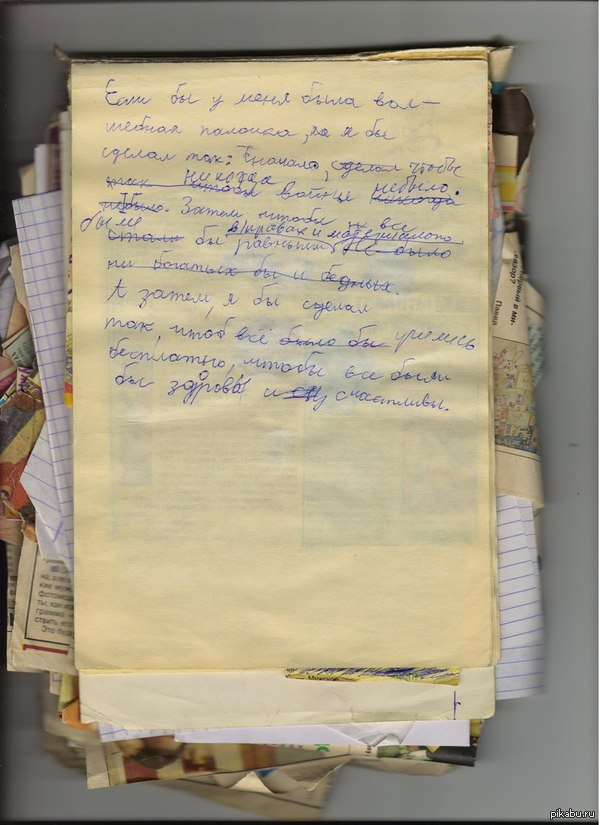 Если бы у меня была вол-
шебная палочка, то я бы
сделал так: Сначала, сделал чтобы
так чтобы никогда войны небыло.
никогда
было. Затем чтобы и все
были в правах и материально
стали бы равными, не было
ни богатых бы и бедных.
А затем, я бы сделал
так, чтоб всё было бы учились
бесплатно, чтобы все были
бы здоровы и счастливы.
Павел
pikabu.ru